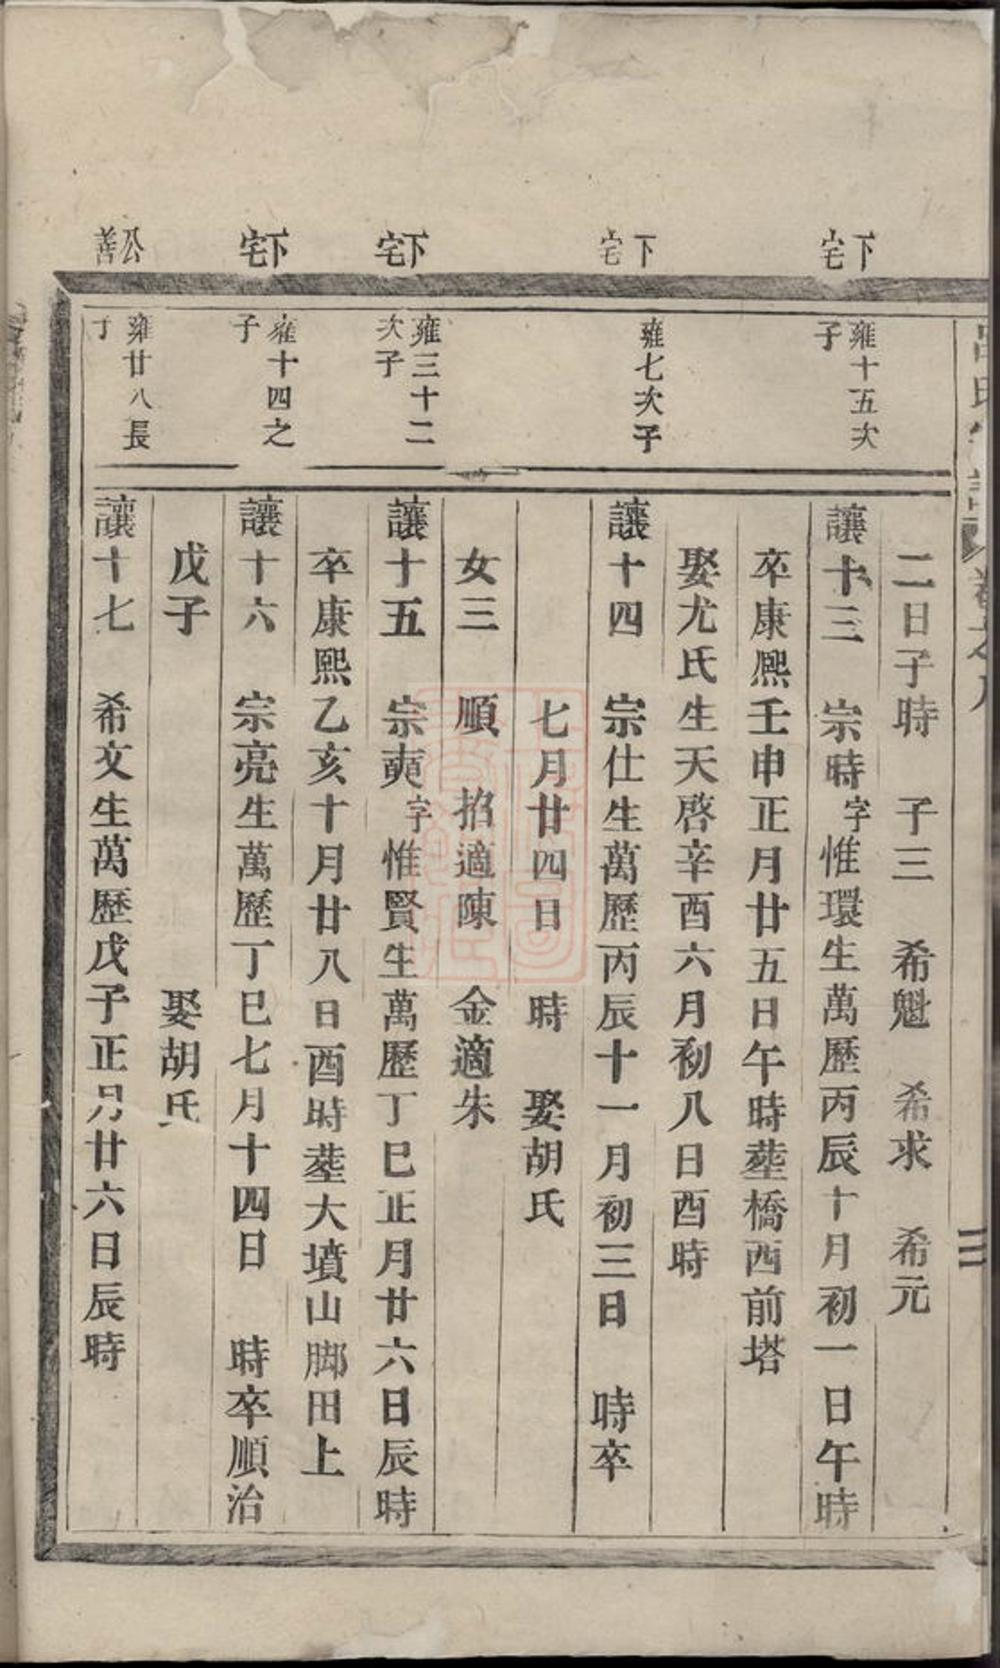 下宅
下宅
下宅
下宅
公善
雍十五次子
雍七次子
雍三十二次子
雍十四之子
雍廿八長子
二日子時 子三 希魁 希求 希元
讓十三 宗時字惟環生萬歷丙辰十月初一日午時
卒康熙壬申正月廿五日午時塟橋西前塔
娶尤氏生天啓辛酉六月初八日酉時
讓十四 宗仕生萬歷丙辰十一月初三日 時卒
七月廿四日 時 娶胡氏
女三 順 招適陳 金適朱
讓十五 宗奭字惟賢生萬歷丁巳正月廿六日辰時
卒康熙乙亥十月廿八日酉時塟大墳山脚田上
讓十六 宗亮生萬歷丁巳七月十四日 時卒順治
戊子 娶胡氏
讓十七 希文生萬歷戊子正月廿六日辰時